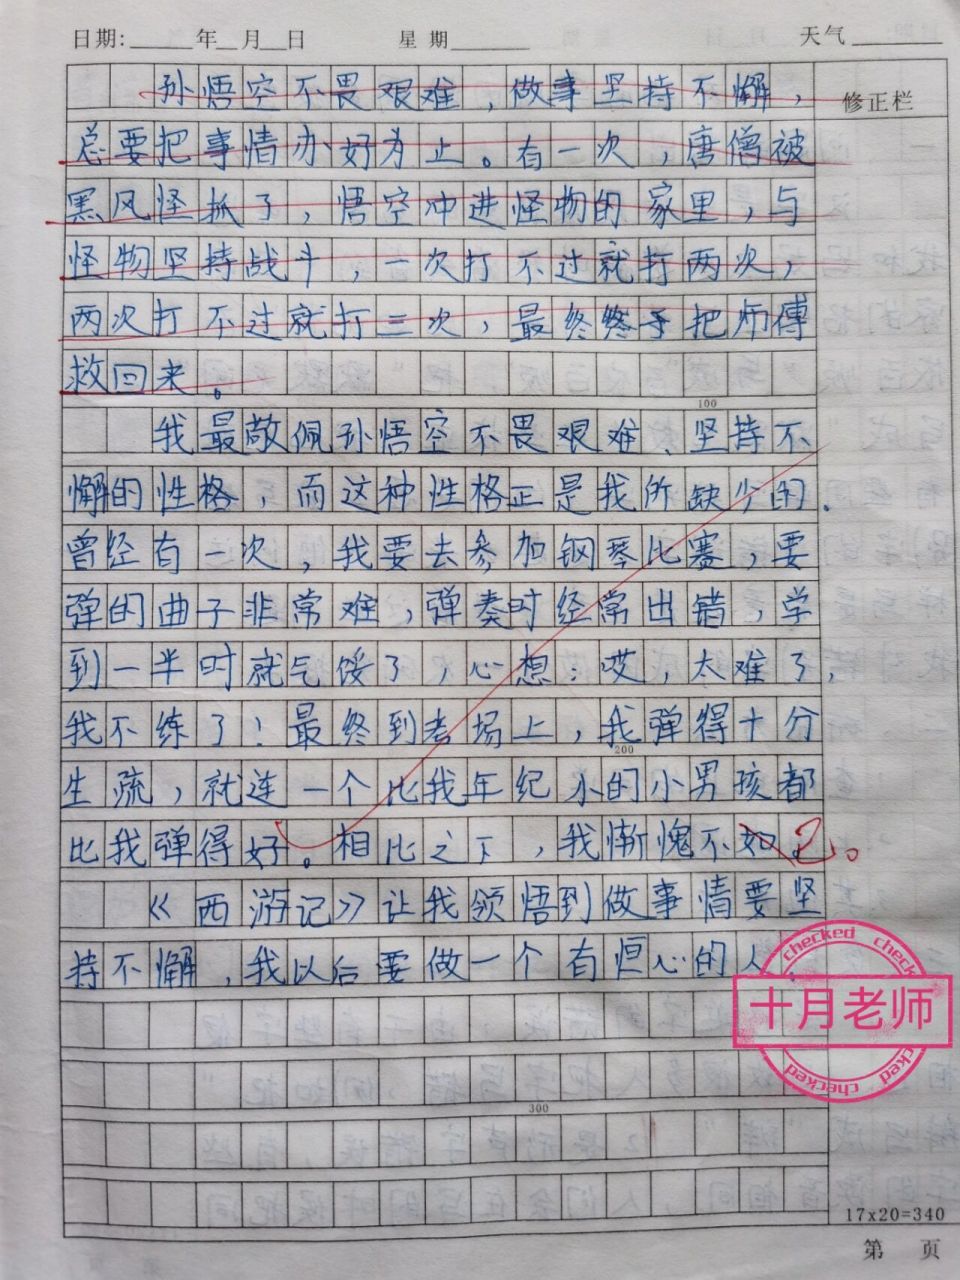 日期:____年__月__日 星期______ 天气______
修正栏
孙悟空不畏艰难，做事坚持不懈，
总要把事情办好为止。有一次，唐僧被
黑风怪抓了，悟空冲进怪物的家里，与
怪物坚持战斗，一次打不过就打两次，
两次打不过就打三次，最终终于把师傅
救回来。
100
我最敬佩孙悟空不畏艰难、坚持不
懈的性格，而这种性格正是我所缺少的.
曾经有一次，我要去参加钢琴比赛，要
弹的曲子非常难，弹奏时经常出错，学
到一半时就气馁了，心想：哎，太难了，
我不练了！最终到考场上，我弹得十分
200
生疏，就连一个比我年纪小的小男孩都
比我弹得好。相比之下，我惭愧不如已。
《西游记》让我领悟到做事情要坚
持不懈，我以后要做一个有恒心的人.
checked checked
十月老师
checked checked
300
17x20=340
第 页